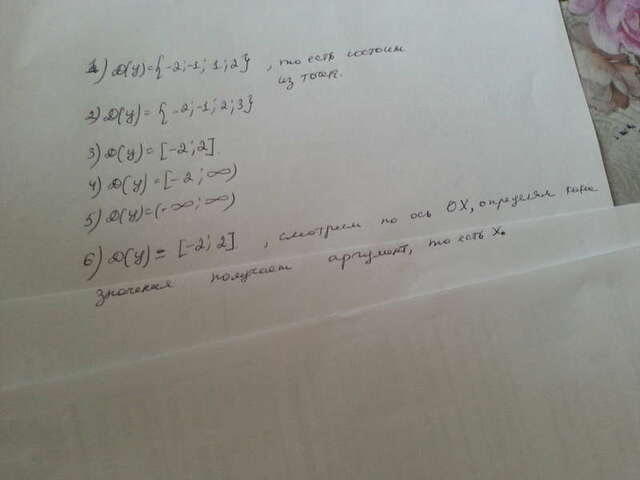 1) D(y)={-2;-1; 1; 2} , то есть состоит
из точек.
2) D(y)= {-2;-1; 2; 3}
3) D(y)= [-2; 2]
4) D(y)= [-2; ∞)
5) D(y)=(-∞; ∞)
6) D(y)= [-2; 2] , смотрим по ось OX, определям
значения получает аргумент, то есть x.